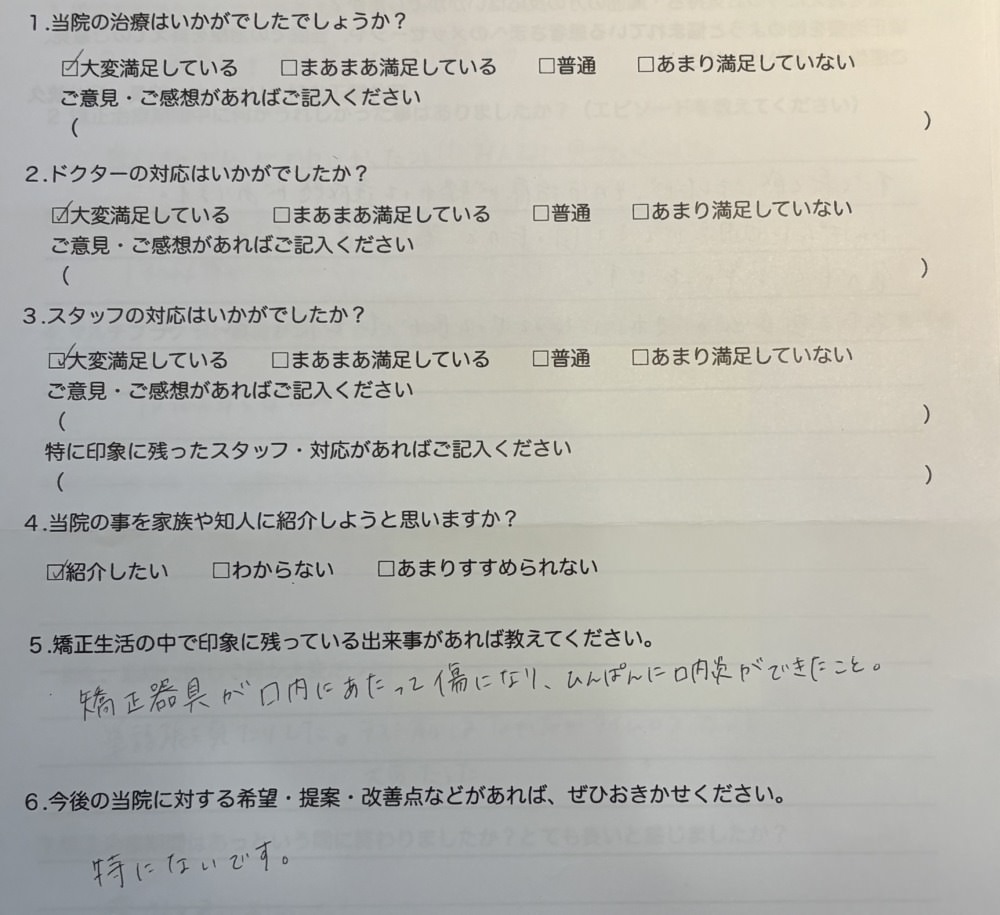 1.当院の治療はいかがでしたでしょうか？
☑大変満足している □まあまあ満足している □普通 □あまり満足していない
ご意見・ご感想があればご記入ください
( )
2.ドクターの対応はいかがでしたか？
☑大変満足している □まあまあ満足している □普通 □あまり満足していない
ご意見・ご感想があればご記入ください
( )
3.スタッフの対応はいかがでしたか？
☑大変満足している □まあまあ満足している □普通 □あまり満足していない
ご意見・ご感想があればご記入ください
( )
特に印象に残ったスタッフ・対応があればご記入ください
( )
4.当院の事を家族や知人に紹介しようと思いますか？
☑紹介したい □わからない □あまりすすめられない
5.矯正生活の中で印象に残っている出来事があれば教えてください。
矯正器具が口内にあたって傷になり、ひんぱんに口内炎ができたこと。
6.今後の当院に対する希望・提案・改善点などがあれば、ぜひおきかせください。
特にないです。